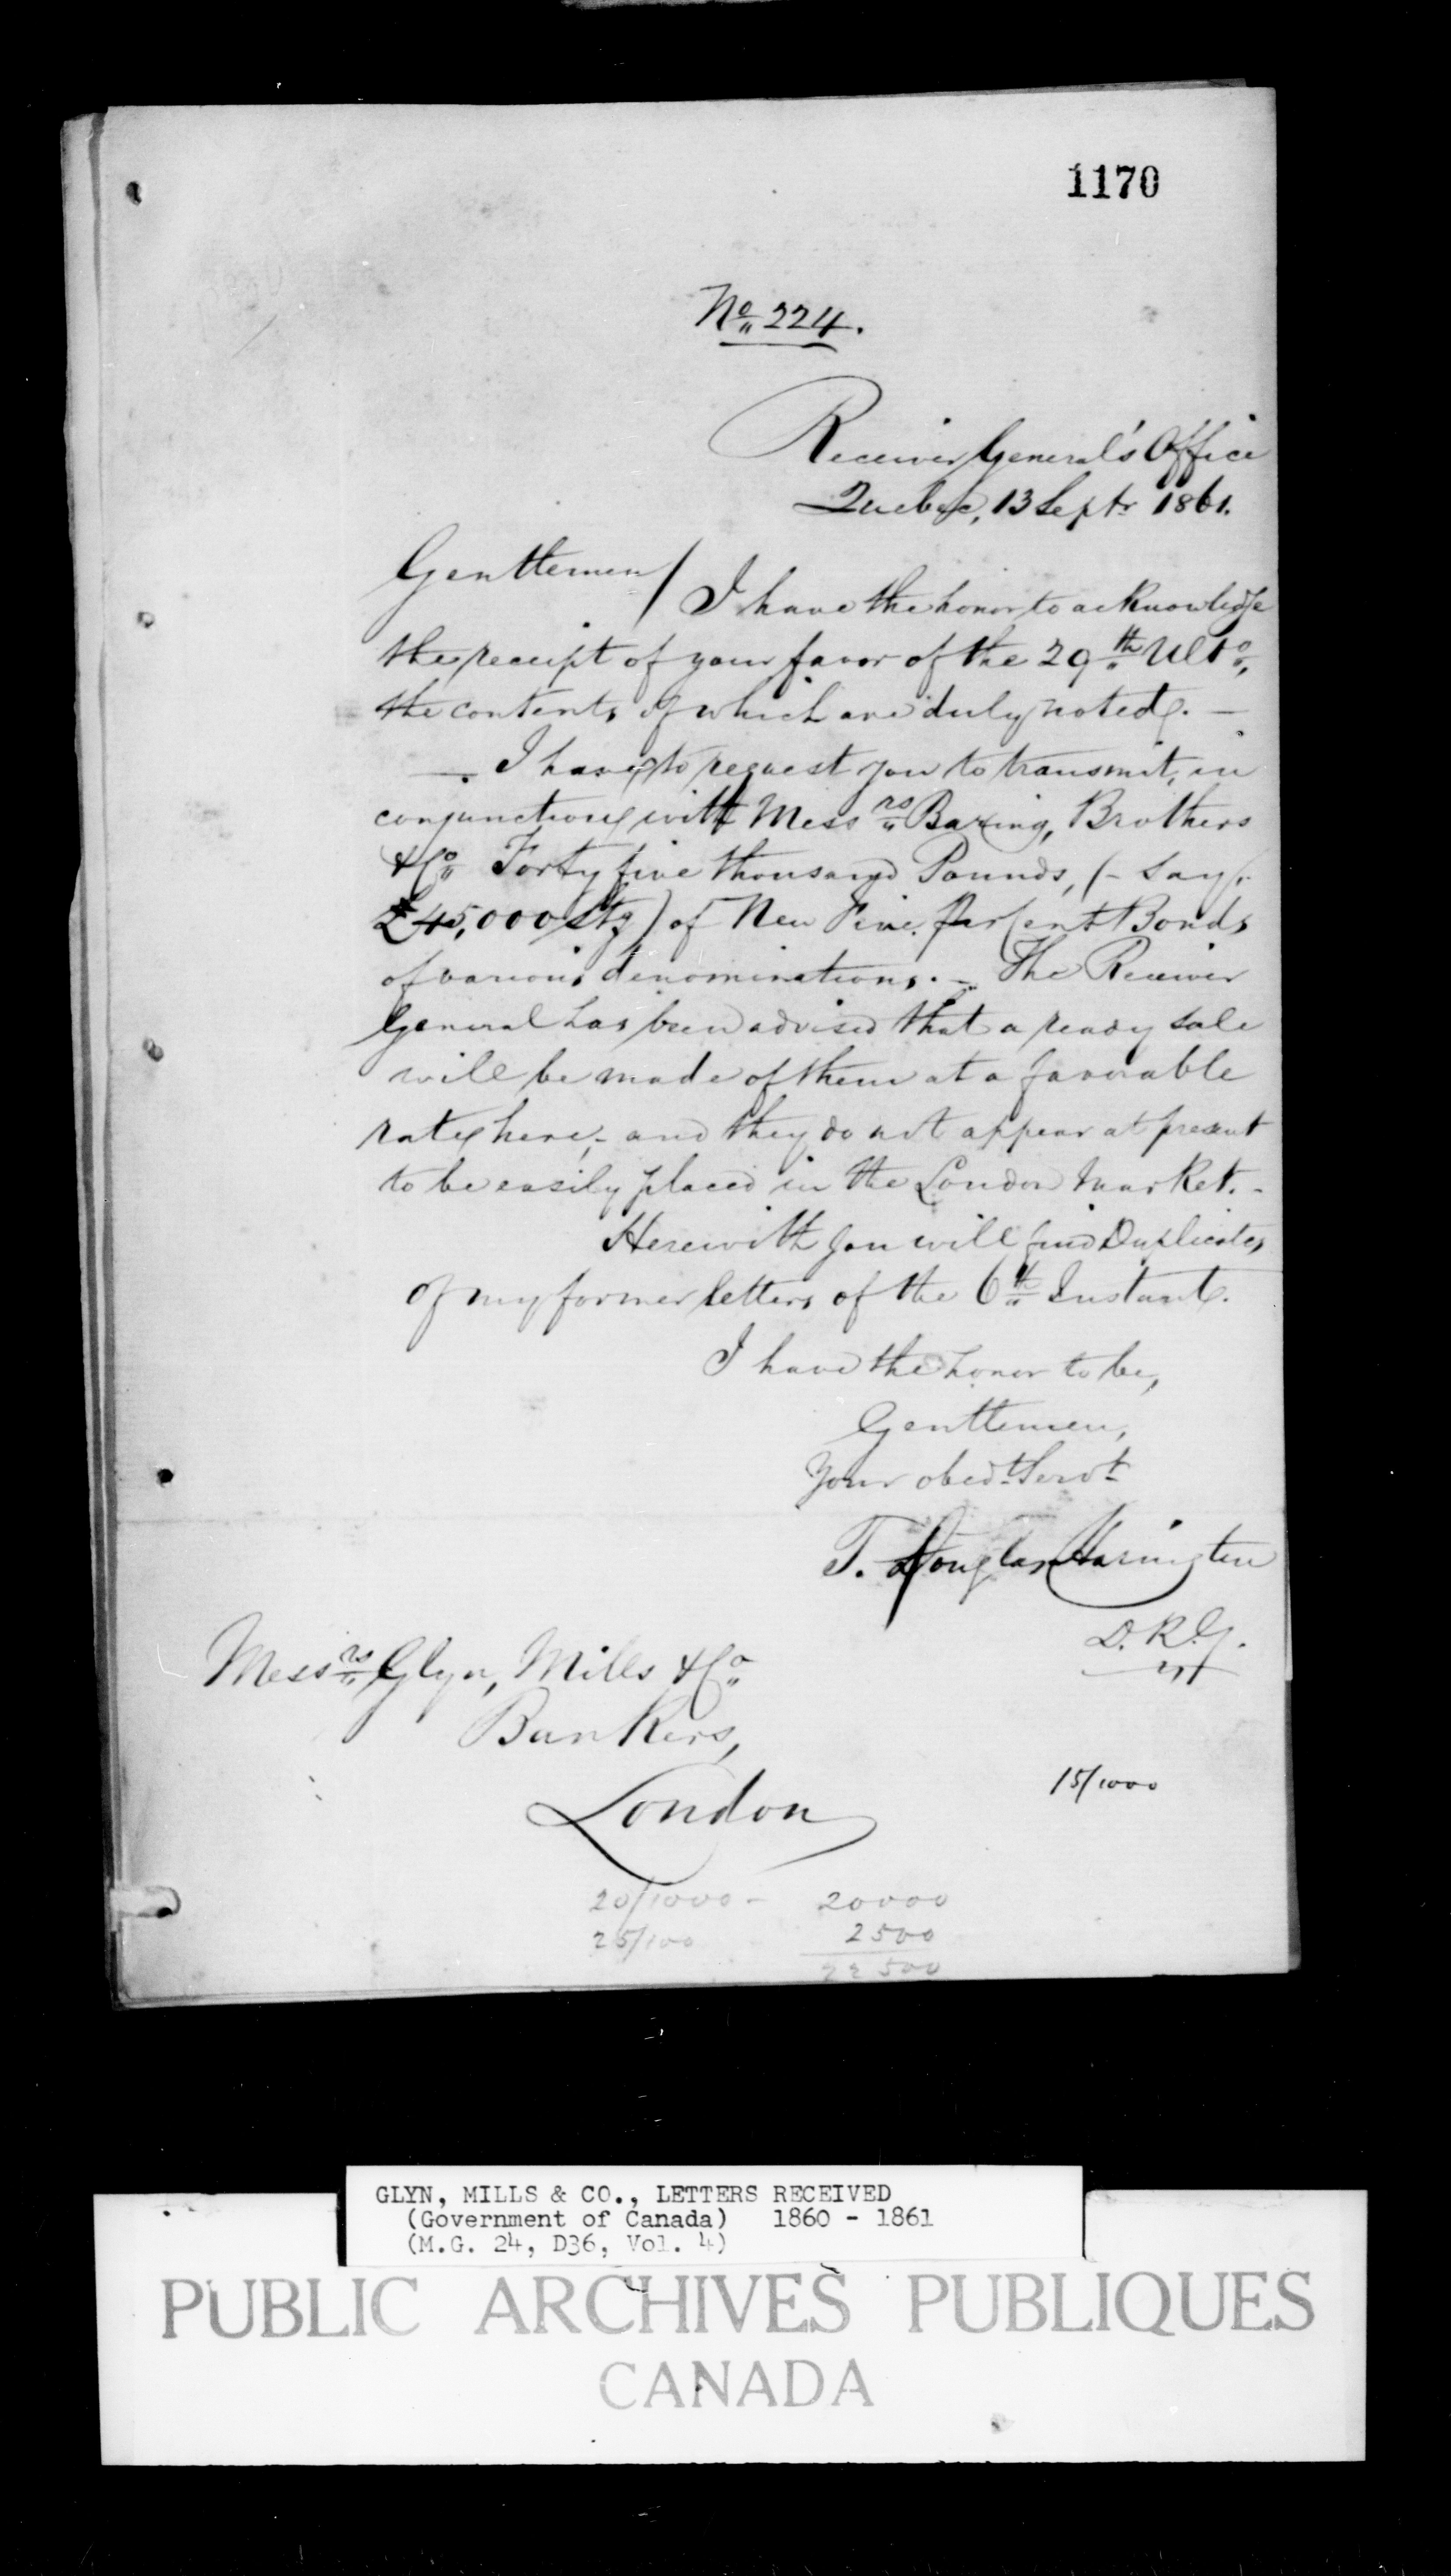 1170
No 224.
Receiver General's Office
Quebec, 13 Septr 1861.
Gentlemen/
I have the honor to acknowledge
the receipt of your favor of the 29th Ulto,
the contents of which are duly noted. —
—. I have to request you to transmit, in
conjunction with Messrs Baring, Brothers
& Co Forty five thousand Pounds, (- say,
£45,000 Stg) of New Five per Cent Bonds
of various denominations. – The Receiver
General has been advised that a ready sale
will be made of them at a favorable
rate here; – and they do not appear at present
to be easily placed in the London Market. –
Herewith you will find Duplicates
of my former letters of the 6th Instant.
I have the honor to be,
Gentlemen,
Your obedt Servt
T. Douglas Harington
D. R. G.
Messrs Glyn, Mills & Co
Bankers,
London
15/1000
20/1000 – 20000
25/100 2500
22500
GLYN, MILLS & CO., LETTERS RECEIVED
(Government of Canada) 1860 - 1861
(M.G. 24, D36, Vol. 4)
PUBLIC ARCHIVES PUBLIQUES
CANADA